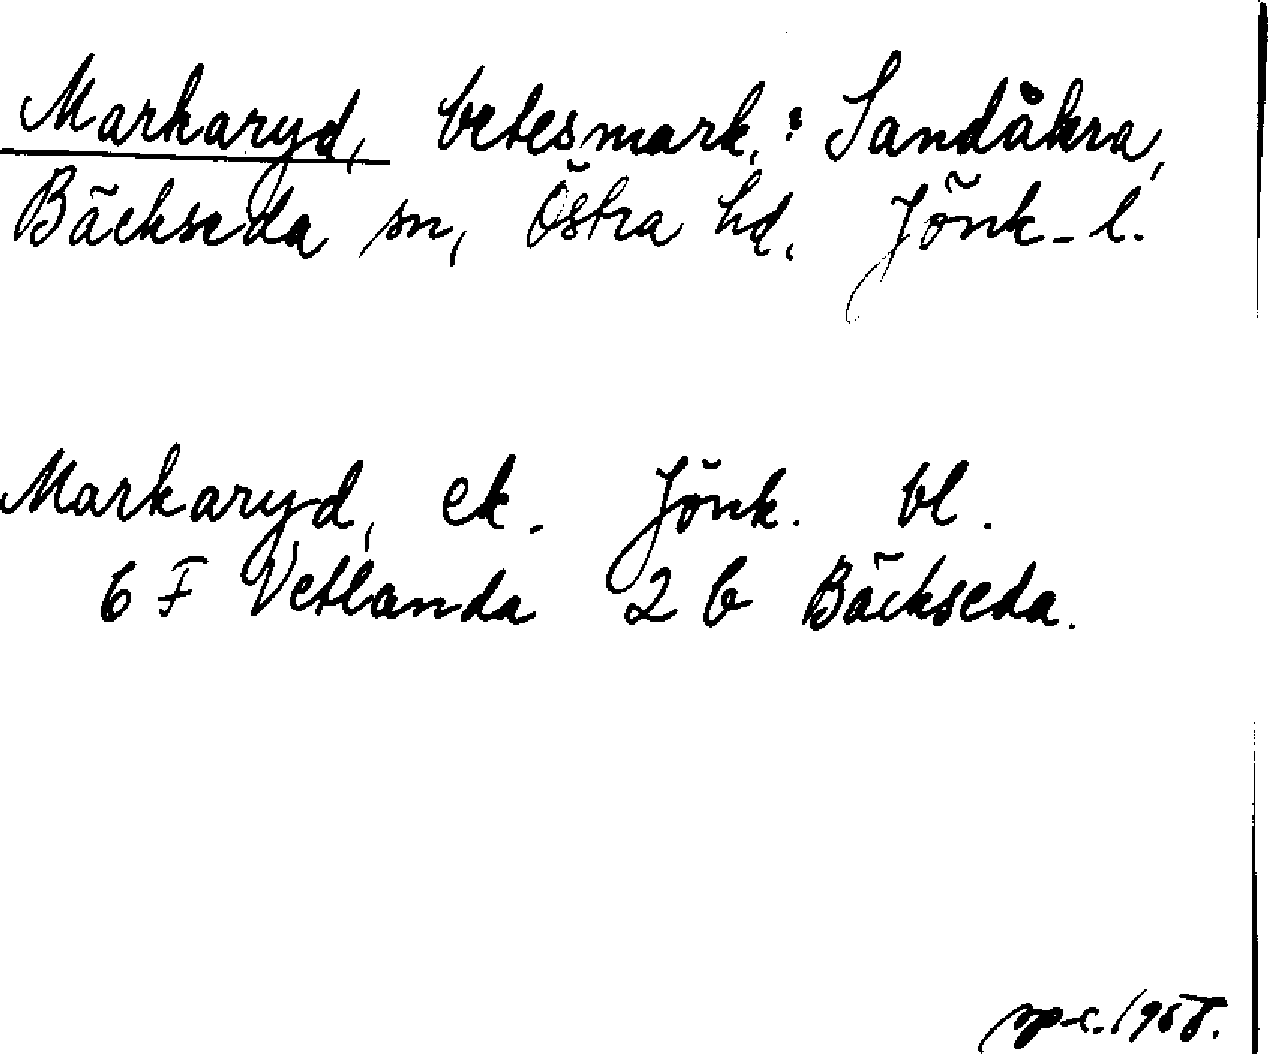 Markaryd, betesmark, : Sandåkra,
Bäckseda sn, Östra hd. Jönk. l.
Markaryd, ek. Jönk. bl.
6 F Vetlanda 2 b Bäckseda.